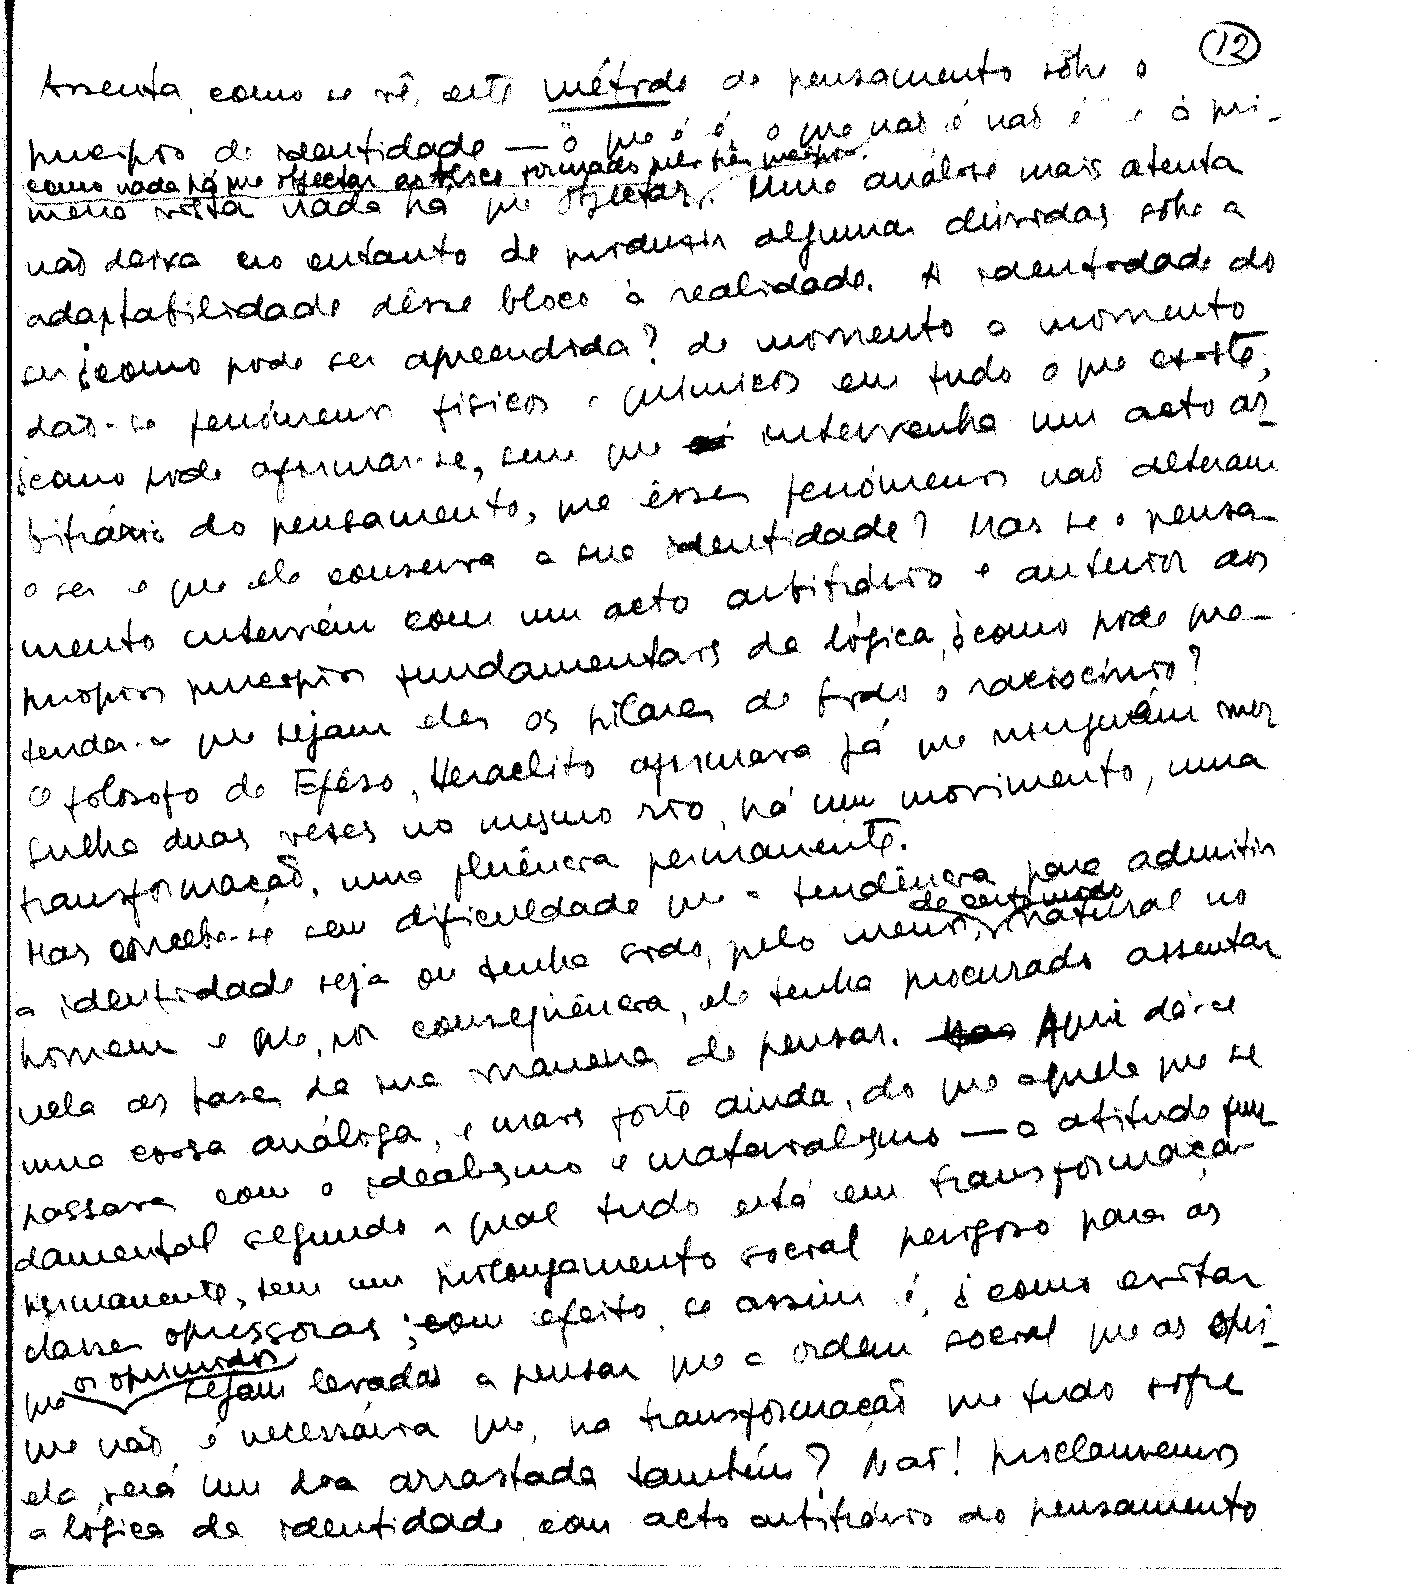 12
Assenta, como se vê, este método de pensamento sôbre o
princípio de identidade — o que é é, o que não é não é e à pri-
como nada há que objectar ao bloco formado pelos três princípios.
meira vista nada há que objectar. Uma análise mais atenta
não deixa no entanto de produzir algumas dúvidas sôbre a
adaptabilidade dêsse bloco à realidade. A identidade do
ser ¿como pode ser apreendida? de momento a momento
dão-se fenómenos físicos e químicos em tudo o que existe,
¿como pode afirmar-se, sem que intervenha um acto ar-
bitrário do pensamento, que êsses fenómenos não alteram
o ser e que ele conserva a sua identidade? Mas se o pensa-
mento intervém com um acto arbitrário e anterior aos
próprios princípios fundamentais da lógica, ¿como pode pre-
tender-se que sejam eles os pilares de todo o raciocínio?
O filósofo de Efeso, Heraclito afirmava já que ninguém mer
gulha duas vezes no mesmo rio, há um movimento, uma
transformação, uma fluência permanente.
Mas concebe-se sem dificuldade que a tendência para admitir
de certo modo
a identidade seja ou tenha sido, pelo menos, natural no
homem e que, por conseqüência, ele tenha procurado assentar
nela as bases da sua maneira de pensar. Aqui dá-se
uma coisa análoga, e mais forte ainda, do que aquela que se
passava com o idealismo e materialismo — a atitude fun
damental segundo a qual tudo está em transformação
permanente, tem um prolongamento social perigoso para as
classes opressoras; com efeito, se assim é, ¿como evitar
os oprimidos
que sejam levados a pensar que a ordem social que as opri-
me não é necessária que, na transformação que tudo sofre
ela será um dia arrastada também? Não! proclamemos
a lógica da identidade, com acto arbitrário do pensamento